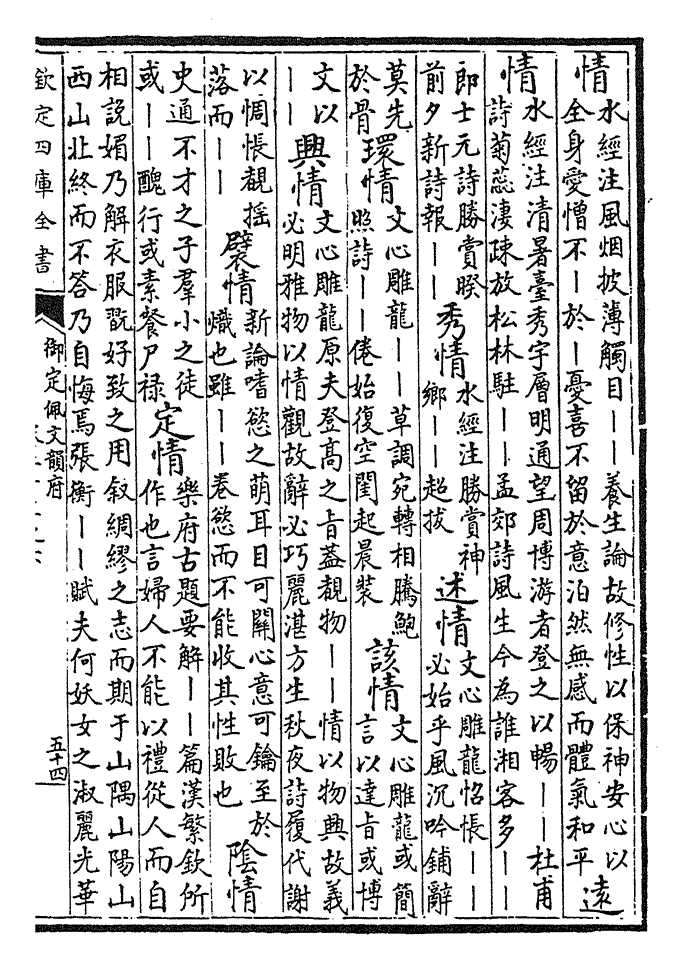 情
水經注風烟披薄觸目——養生論故修性以保神安心以
全身愛憎不—於—憂喜不留於意泊然無感而體氣和平
遠
情
水經注清暑臺秀宇層明通望周博游者登之以暢——杜甫
詩菊蕊凄疎放松林駐——孟郊詩風生今為誰湘客多——
郎士元詩勝賞睽
前夕新詩報——
秀情
水經注勝賞神
鄉——超拔
述情
文心雕龍怊悵——
必始乎風沉吟鋪辭
莫先
於骨
環情
文心雕龍——草調宛轉相騰鮑
照詩——倦始復空閨起晨裝
該情
文心雕龍或簡
言以達旨或博
文以
——
興情
文心雕龍原夫登高之旨葢覩物——情以物興故義
必明雅物以情觀故辭必巧麗湛方生秋夜詩履代謝
以惆悵覩搖
落而——
襞情
新論嗜慾之萌耳目可關心意可鑰至於
熾也雖——卷慾而不能收其性敗也
陰情
史通不才之子羣小之徒
或——醜行或素餐尸祿
定情
樂府古題要解——篇漢繁欽所
作也言婦人不能以禮從人而自
相說媚乃解衣服翫好致之用叙綢繆之志而期于山隅山陽山
西山北終而不答乃自悔焉張衡——賦夫何妖女之淑麗光華
欽定四庫全書
御定佩文韻府
五十四